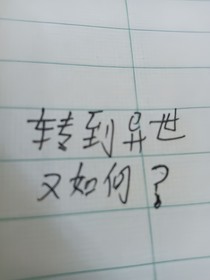 转到异世
又如何?